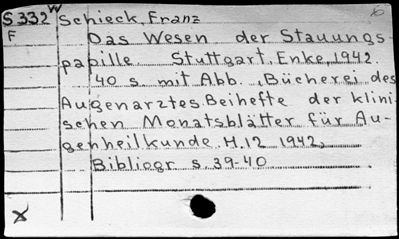 S 332 W Schieck, Franz
F Das Wesen der Stauungs-
papille Stuttgart, Enke, 1942.
40 s. mit Abb., Bücherei des
Augenarztes. Beihefte der klini-
schen Monatsblätter für Au-
genheilkunde. H.12 1942,
Bibliogr s. 39-40
x